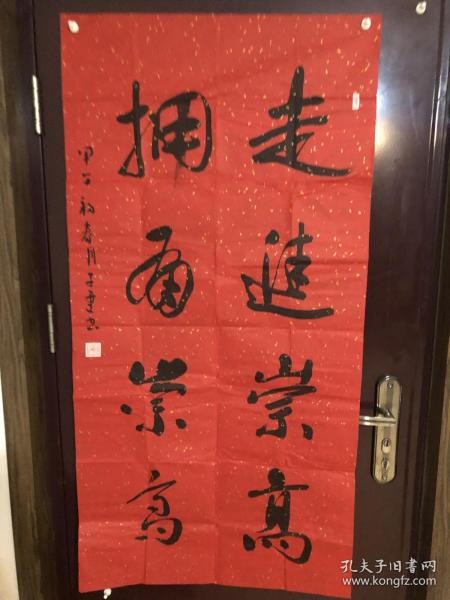 走进崇高
拥有崇高
甲午初春
孔夫子旧书网
www.kongfz.com